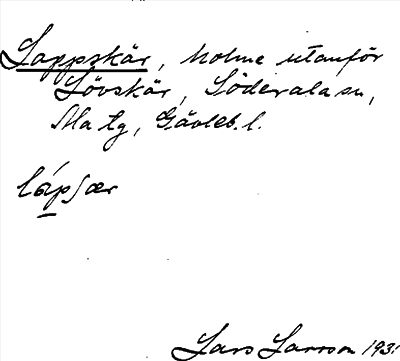 Lappskär, holme utanför
Lövskär, Söderala sn,
Ala tg, Gävleb. l.
lápʃær
Lars Larsson 193